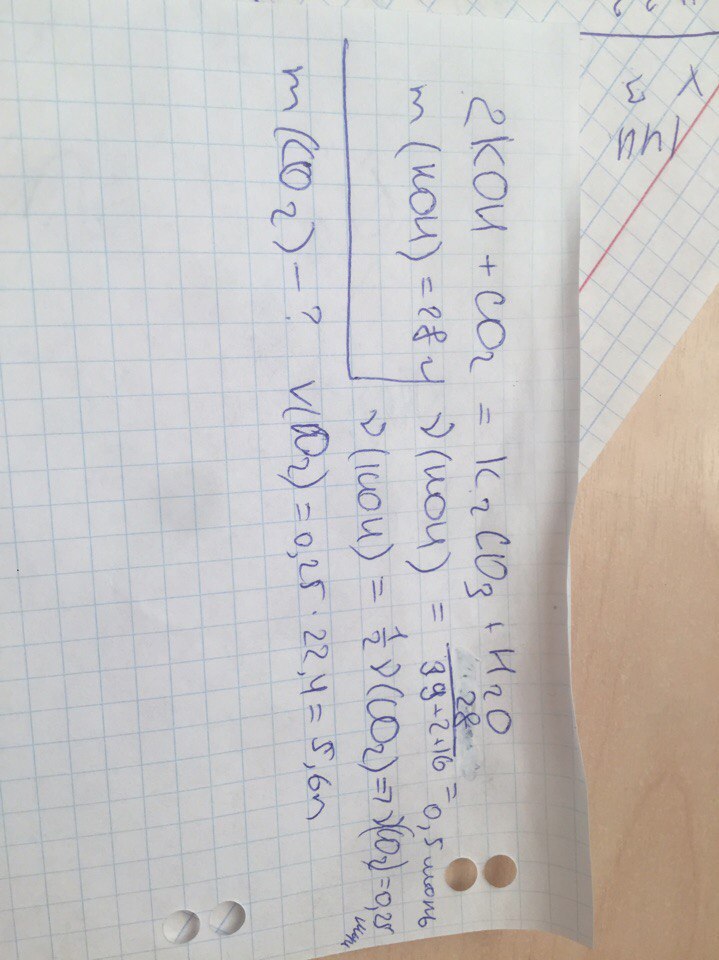 2KOH + CO2 = K2CO3 + H2O
m(KOH) = 28 г ν(KOH) = 28/39+2+16 = 0,5 моль
ν(KOH) = 1/2 ν(CO2) => ν(CO2) = 0,25 моль
m(CO2) - ? V(CO2) = 0,25 · 22,4 = 5,6 л
144